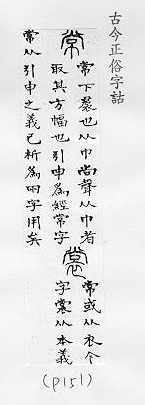 古今正俗字詁
常
常下裠也从巾尚聲从巾者
取其方幅也引申為經常字
裳
常或从衣今
字裳从本義
常从引申之義已析為兩字用矣
(P151)